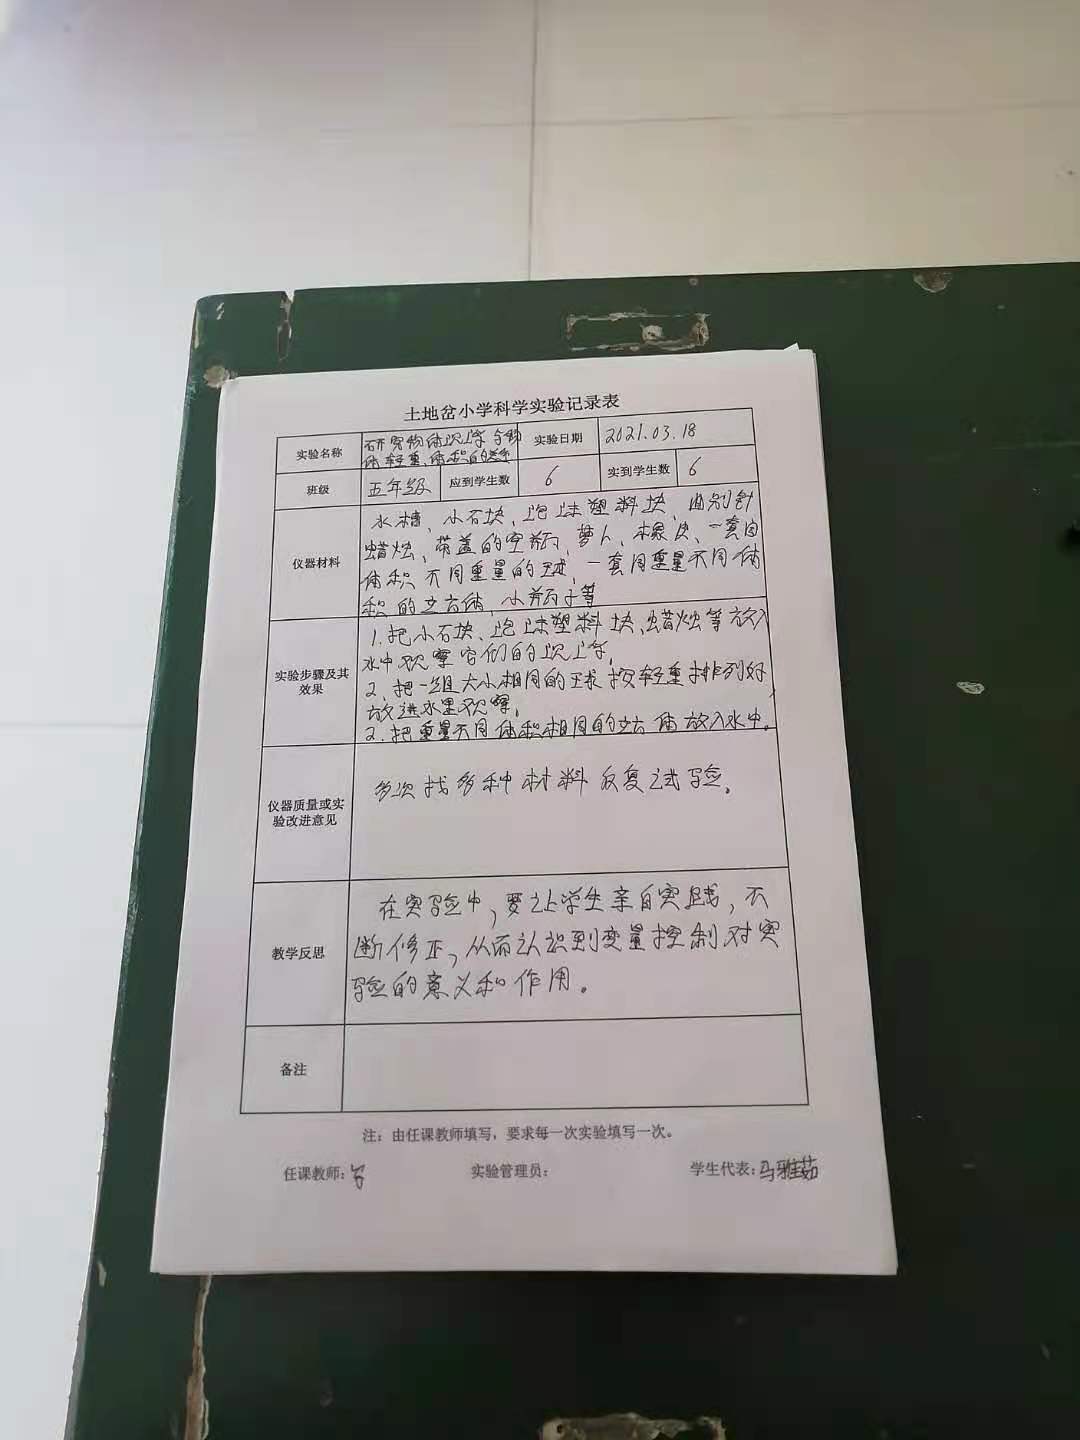 土地岔小学科学实验记录表
实验名称
研究物体沉浮与物
体轻重、体积的关系
实验日期
2021.03.18
班级
五年级
应到学生数
6
实到学生数
6
仪器材料
水槽、小石块、泡沫塑料块、曲别针
蜡烛、带盖的空瓶、萝卜、橡皮、一套同
体积不同重量的球、一套同重量不同体
积的立方体、小瓶子等
实验步骤及其
效果
1.把小石块、泡沫塑料块、蜡烛等放入
水中观察它们的沉浮。
2.把一组大小相同的球按轻重排列好,
放进水里观察。
2.把重量不同体积相同的立方体放入水中。
仪器质量或实
验改进意见
多次找多种材料反复试验。
教学反思
在实验中,要让学生亲自实践,不
断修正,从而认识到变量控制对实
验的意义和作用。
备注
注:由任课教师填写,要求每一次实验填写一次。
任课教师:
实验管理员:
学生代表:马雅茹